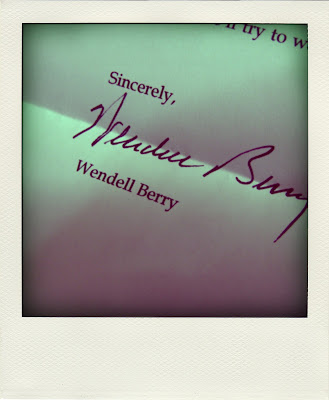 try to w
Sincerely,
Wendell Berry
Wendell Berry